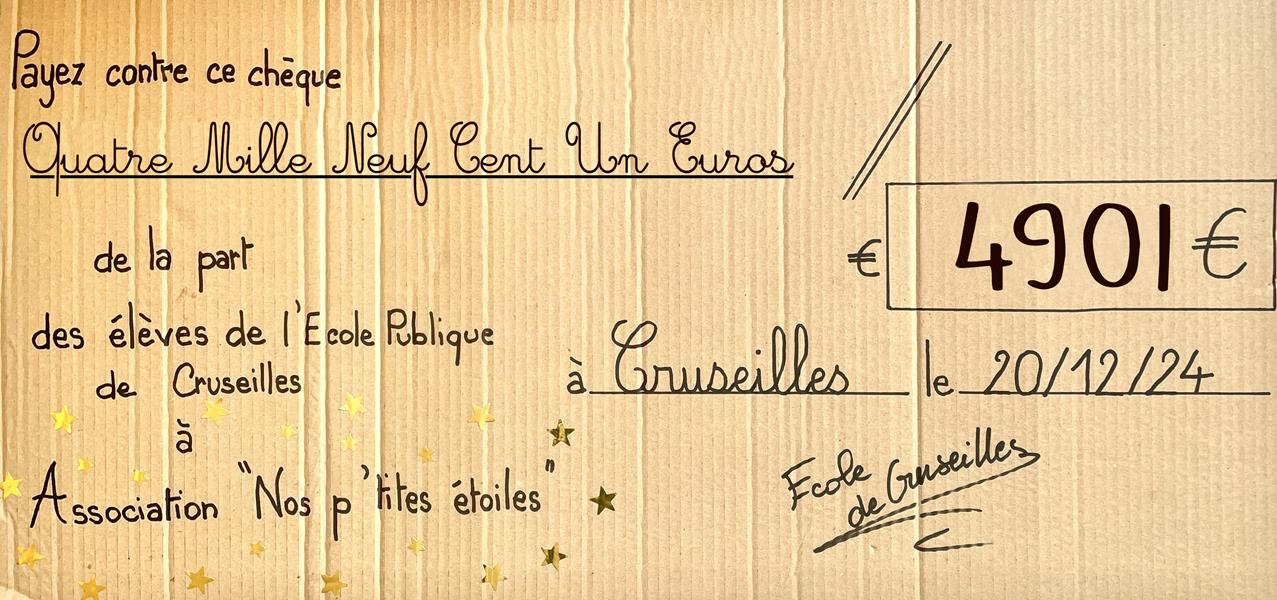 Payez contre ce chèque
Quatre Mille Neuf Cent Un Euros
€ 4901 €
de la part
des élèves de l'Ecole Publique
de Cruseilles
à
Association "Nos p'tites étoiles"
à Cruseilles le 20/12/24
Ecole
de Cruseilles